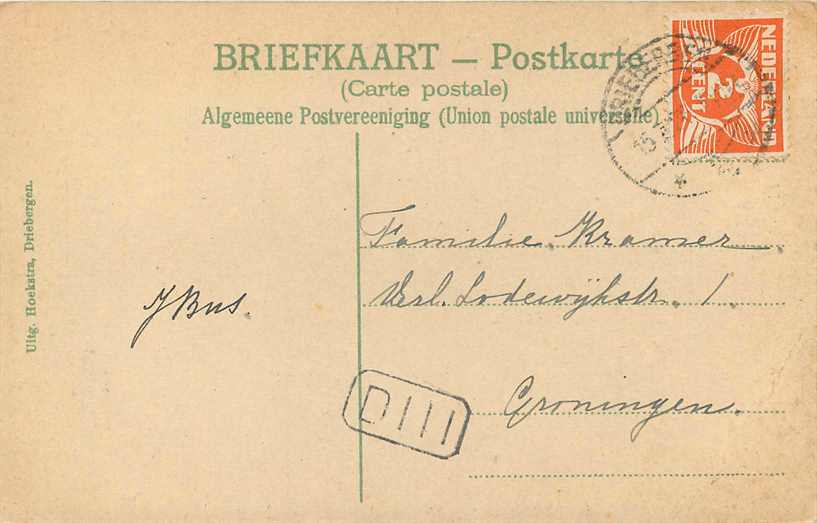 BRIEFKAART — Postkarte
(Carte postale)
Algemeene Postvereeniging (Union postale universelle)
NEDERLAND
2
CENT
DRIEBERGEN
15
Uitg. Hoekstra, Driebergen.
J Bus.
Familie Kramer
Verl. Lodewijkstr. 1
Groningen.
D III